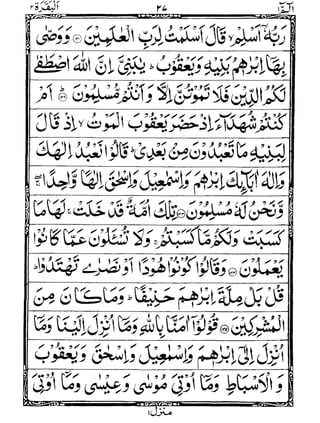 البقرة ٢ ٢٧ الٓمّٓ ١
رَبُّهٗۤ اَسْلِمْ ۙ قَالَ اَسْلَمْتُ لِرَبِّ الْعٰلَمِيْنَ وَوَصّٰى
بِهَاۤ اِبْرٰهٖمُ بَنِيْهِ وَيَعْقُوْبُ ؕ يٰبَنِيَّ اِنَّ اللّٰهَ اصْطَفٰى
لَكُمُ الدِّيْنَ فَلَا تَمُوْتُنَّ اِلَّا وَاَنْتُمْ مُّسْلِمُوْنَ ؕ اَمْ
كُنْتُمْ شُهَدَآءَ اِذْ حَضَرَ يَعْقُوْبَ الْمَوْتُ ۙ اِذْ قَالَ
لِبَنِيْهِ مَا تَعْبُدُوْنَ مِنْۢ بَعْدِيْ ؕ قَالُوْا نَعْبُدُ اِلٰهَكَ
وَاِلٰهَ اٰبَآئِكَ اِبْرٰهٖمَ وَاِسْمٰعِيْلَ وَاِسْحٰقَ اِلٰهًا وَّاحِدًا ۖۚ
وَّنَحْنُ لَهٗ مُسْلِمُوْنَ تِلْكَ اُمَّةٌ قَدْ خَلَتْ ۚ لَهَا مَا
كَسَبَتْ وَلَكُمْ مَّا كَسَبْتُمْ ۚ وَلَا تُسْـَٔلُوْنَ عَمَّا كَانُوْا
يَعْمَلُوْنَ وَقَالُوْا كُوْنُوْا هُوْدًا اَوْ نَصٰرٰى تَهْتَدُوْا ؕ
قُلْ بَلْ مِلَّةَ اِبْرٰهٖمَ حَنِيْفًا ؕ وَمَا كَانَ مِنَ
الْمُشْرِكِيْنَ قُوْلُوْۤا اٰمَنَّا بِاللّٰهِ وَمَاۤ اُنْزِلَ اِلَيْنَا وَمَاۤ
اُنْزِلَ اِلٰٓى اِبْرٰهٖمَ وَاِسْمٰعِيْلَ وَاِسْحٰقَ وَيَعْقُوْبَ
وَالْاَسْبَاطِ وَمَاۤ اُوْتِيَ مُوْسٰى وَعِيْسٰى وَمَاۤ اُوْتِيَ
منزل ١